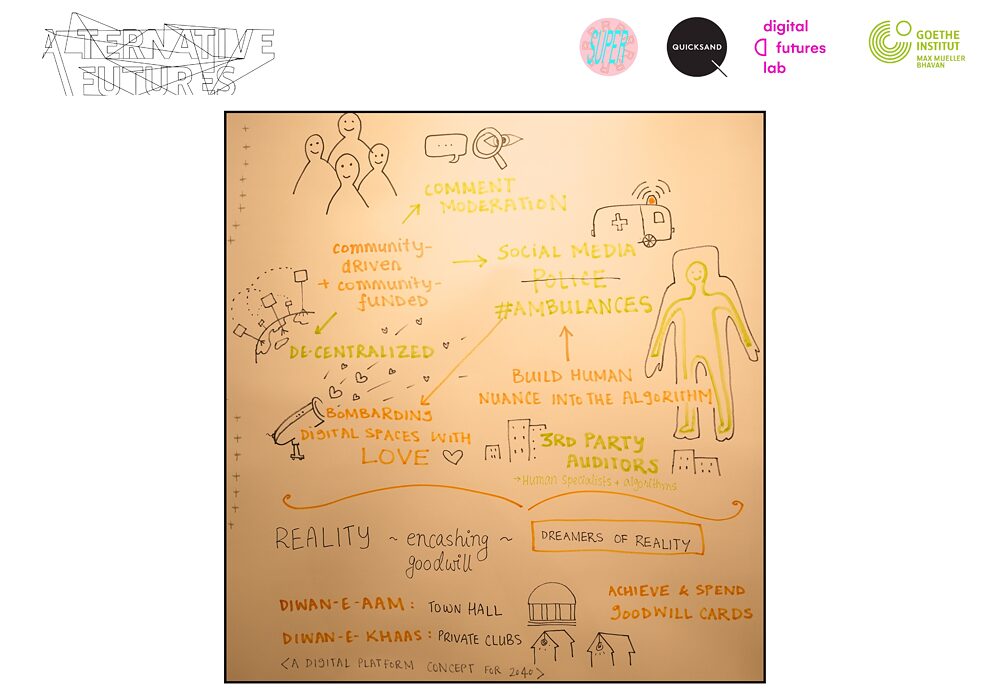 ALTERNATIVE
FUTURES
SUPERRR
QUICKSAND
digital
futures
lab
GOETHE
INSTITUT
MAX MUELLER
BHAVAN
COMMENT
MODERATION
COMMUNITY-
DRIVEN
+ COMMUNITY-
FUNDED
SOCIAL MEDIA
POLICE
#AMBULANCES
DE-CENTRALIZED
BUILD HUMAN
NUANCE INTO THE ALGORITHM
BOMBARDING
DIGITAL SPACES WITH
LOVE
3RD PARTY
AUDITORS
→Human specialists + algorithms
REALITY ~ encashing ~
goodwill
DREAMERS OF REALITY
DIWAN-E-AAM: TOWN HALL
DIWAN-E-KHAAS: PRIVATE CLUBS
<A DIGITAL PLATFORM CONCEPT FOR 2040>
ACHIEVE & SPEND
GOODWILL CARDS